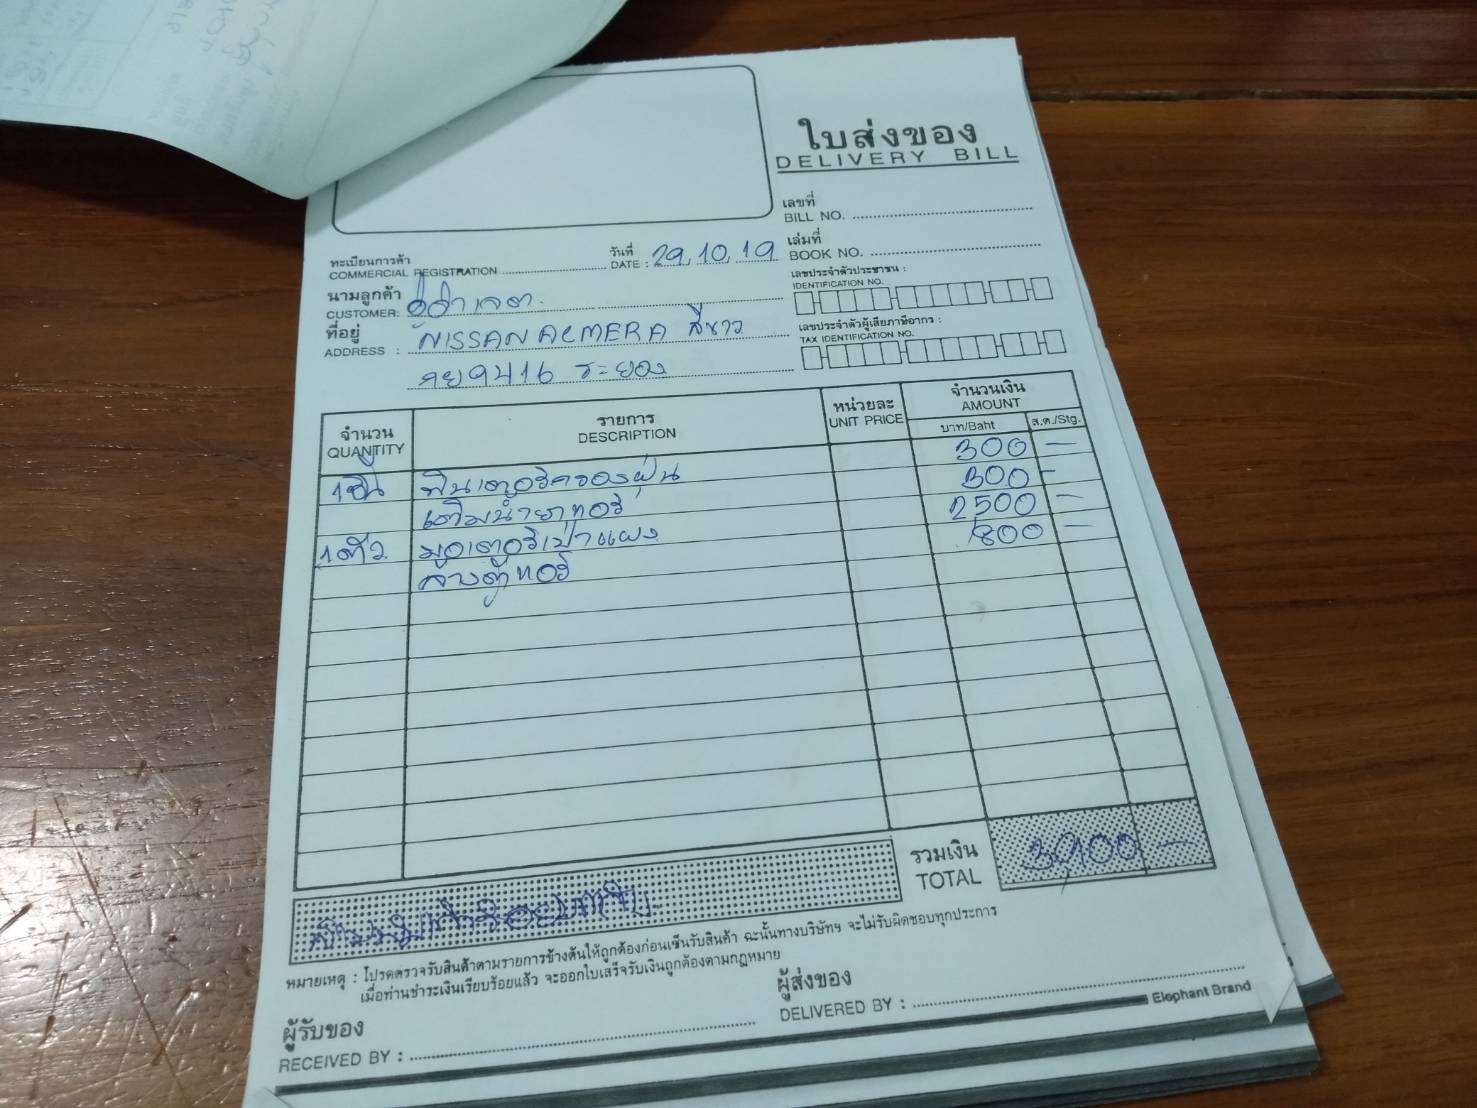 ใบส่งของ
DELIVERY BILL
เลขที่
BILL NO.
เล่มที่
BOOK NO.
ทะเบียนการค้า
COMMERCIAL REGISTRATION
วันที่
DATE : 29.10.19
เลขประจำตัวประชาชน :
IDENTIFICATION NO.
นามลูกค้า
CUSTOMER:
ที่อยู่
ADDRESS : NISSAN ALMERA สีขาว
9416 ระยอง
เลขประจำตัวผู้เสียภาษีอากร :
TAX IDENTIFICATION NO.
จำนวน
QUANTITY
รายการ
DESCRIPTION
หน่วยละ
UNIT PRICE
จำนวนเงิน
AMOUNT
บาท/Baht ส.ต./Stg.
1 ชิ้น ฟินเตอร์ครองฝุ่น 300 -
เติมน้ำยาแอร์ 300 -
1 ตัว มอเตอร์เป่าแผง 2500 -
ล้างตู้แอร์ 800 -
รวมเงิน
TOTAL
3,900 -
สามพันเก้าร้อยบาท
หมายเหตุ : โปรดตรวจรับสินค้าตามรายการข้างต้นให้ถูกต้องก่อนเซ็นรับสินค้า ฉะนั้นทางบริษัทฯ จะไม่รับผิดชอบทุกประการ
เมื่อท่านชำระเงินเรียบร้อยแล้ว จะออกใบเสร็จรับเงินถูกต้องตามกฎหมาย
ผู้รับของ
RECEIVED BY :
ผู้ส่งของ
DELIVERED BY :
Elephant Brand